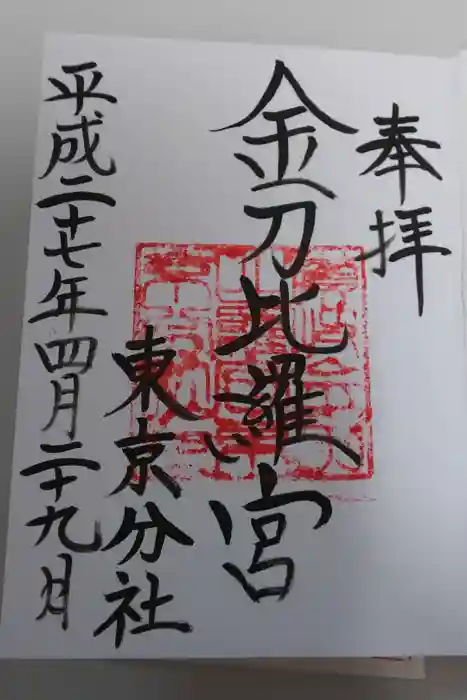 奉拝
金刀比羅宮
東京分社
平成二十七年四月二十九月